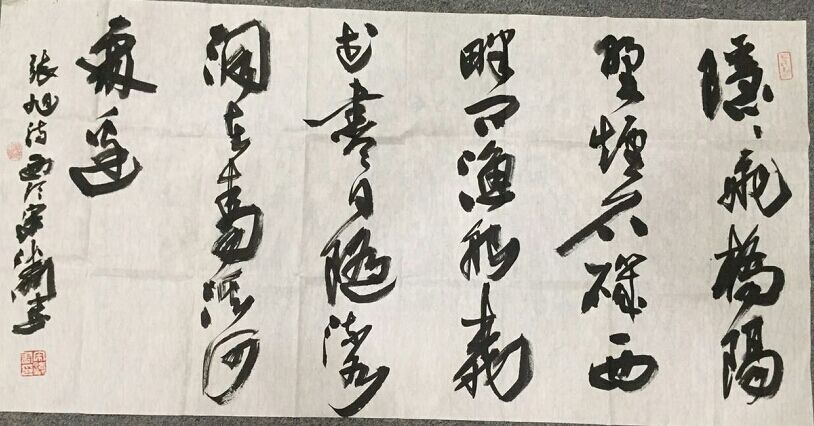 隱々飛橋隔
野煙石磯西
畔問漁船桃
花盡日隨流水
洞在清溪何
處邊
張旭詩